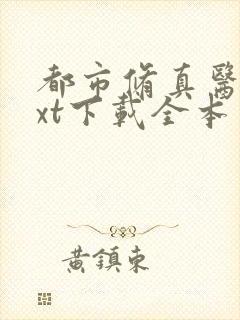 都市脩真醫
xt下載全本
黃鎮東